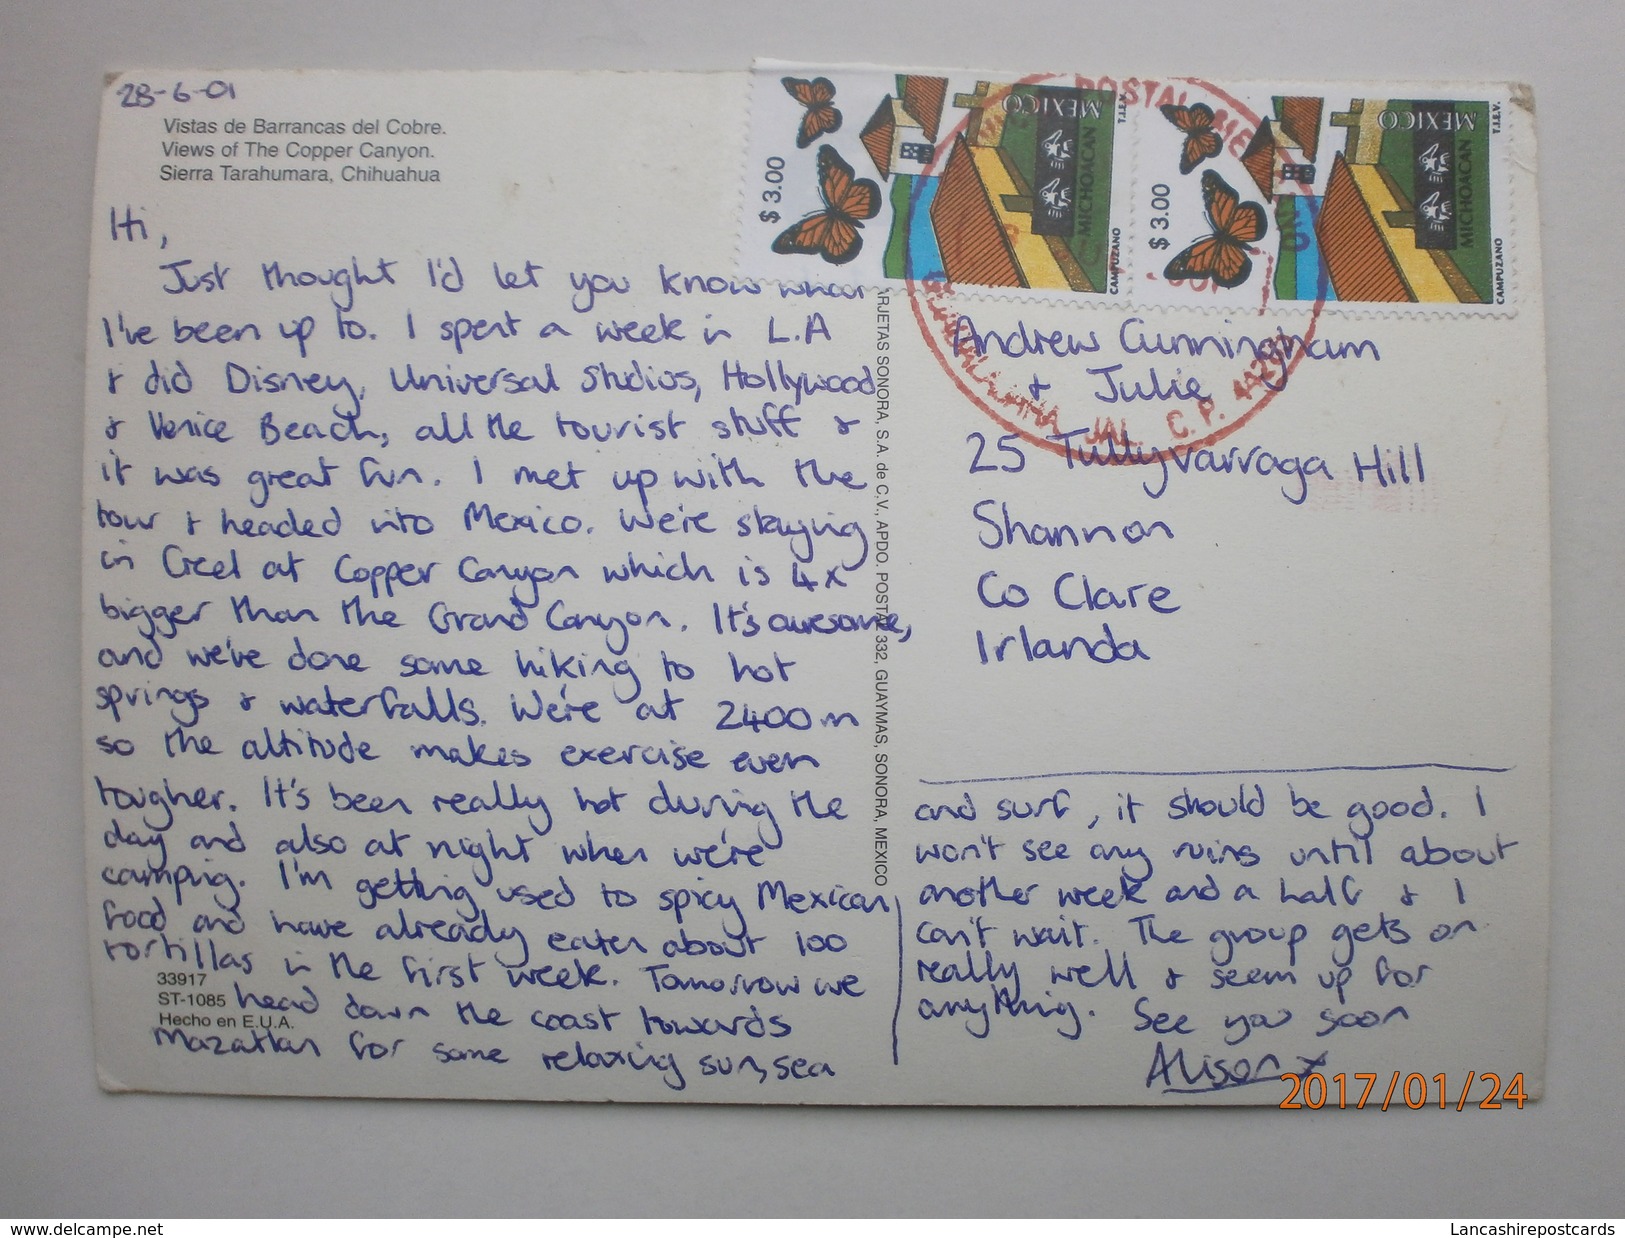 28-6-01
Vistas de Barrancas del Cobre.
Views of The Copper Canyon.
Sierra Tarahumara, Chihuahua
Hi,
Just thought I'd let you know what
I've been up to. I spent a week in L.A
& did Disney, Universal Studios, Hollywood
& Venice Beach, all the tourist stuff &
it was great fun. I met up with the
tour & headed into Mexico. We're staying
in Creel at Copper Canyon which is 4x
bigger than the Grand Canyon. It's awesome,
and we've done some hiking to hot
springs & waterfalls. We're at 2400m
so the altitude makes exercise even
tougher. It's been really hot during the
day and also at night when we're
camping. I'm getting used to spicy Mexican
food and have already eaten about 100
tortillas in the first week. Tomorrow we
head down the coast towards
Mazatlan for some relaxing sun, sea
33917
ST-1085
Hecho en E.U.A.
ARJETAS SONORA, S.A. de C.V., APDO. POSTAL 332, GUAYMAS, SONORA, MEXICO
$3.00
MEXICO
MICHOACAN
CAMPUZANO
T.I.E.V.
$3.00
MEXICO
MICHOACAN
CAMPUZANO
T.I.E.V.
POSTAL
JAL. C.P.
Andrew Cunningham
& Julie
25 Tullyvarraga Hill
Shannon
Co Clare
Irlanda
and surf, it should be good. I
won't see any ruins until about
another week and a half & I
can't wait. The group gets on
really well & seem up for
anything. See you soon
Alison x
2017/01/24
www.delcampe.net
Lancashirepostcards